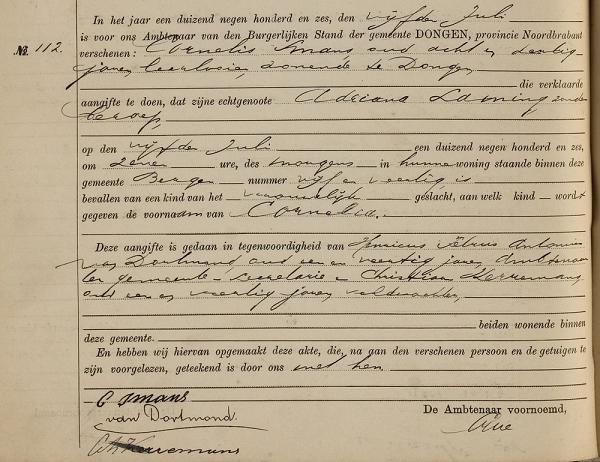 In het jaar een duizend negen honderd en zes, den vijfden Juli
is voor ons Ambtenaar van den Burgerlijken Stand der gemeente DONGEN, provincie Noordbrabant
№. 112.
verschenen: Cornelis Smans oud acht en dertig
jaren, leerlooier, wonende te Dongen
die verklaarde
aangifte te doen, dat zijne echtgenoote Adriana Laming zonder
beroep,
op den vijfden Juli een duizend negen honderd en zes,
om zeven ure, des morgens in hunne woning staande binnen deze
gemeente Bergen nummer vijf en veertig is
bevallen van een kind van het vrouwelijk geslacht, aan welk kind wordt
gegeven de voornaam van Cornelia.
Deze aangifte is gedaan in tegenwoordigheid van Henricus Petrus Antonius
van Dortmond oud een en veertig jaren, ambtenaar
ter gemeente-secretarie en Christiaan Herremans
oud een en veertig jaren veldwachter,
beiden wonende binnen
deze gemeente.
En hebben wij hiervan opgemaakt deze akte, die, na aan den verschenen persoon en de getuigen te
zijn voorgelezen, geteekend is door ons met hen.
C Smans
van Dortmond.
De Ambtenaar voornoemd,
Herremans